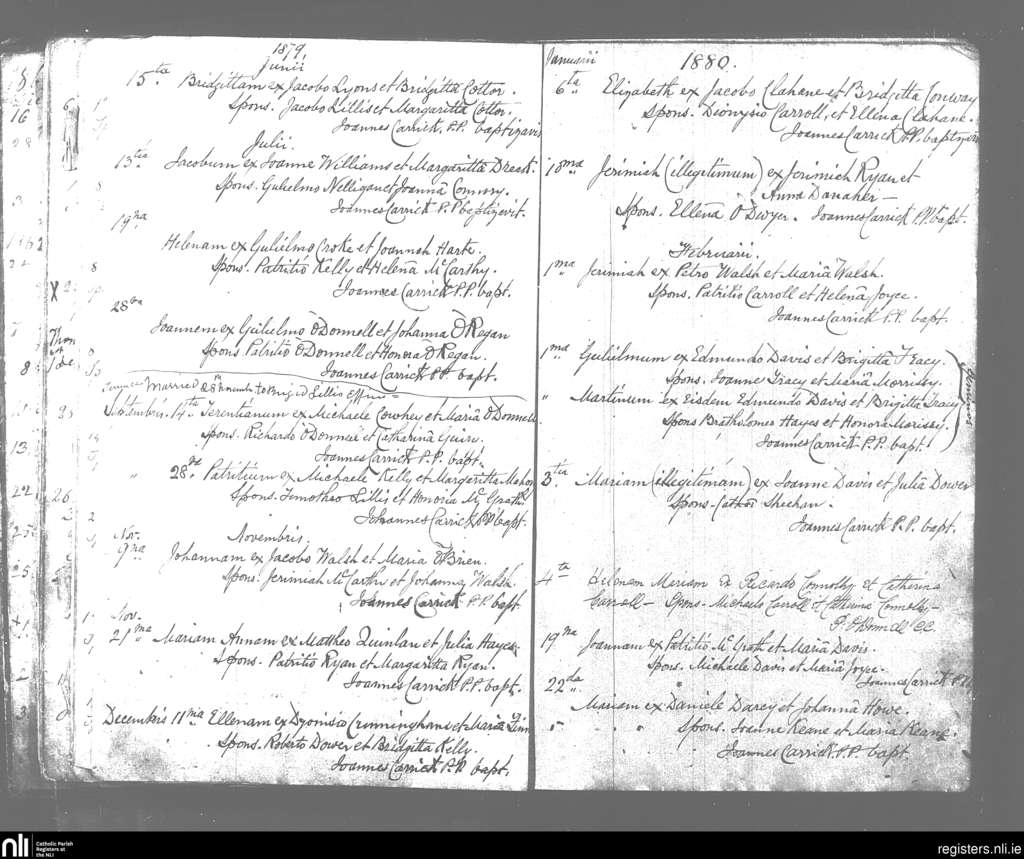 1879.
Junii
15ta Bridgittam ex Jacobo Lyons et Bridgitta Cotter.
Spons. Jacobo Lillis et Margaritta Cotter.
Joannes Carrick, P.P. baptizavit
Julii.
13tia Jacobum ex Joanne Williams et Margaritta
Spons. Gulielmo Nelligan et Joanna Connory.
Joannes Carrick P.P. baptizavit.
19na
Helenam ex Gulielmo Croke et Joannah Harte.
Spons. Patritio Kelly et Helena McCarthy.
Joannes Carrick P.P. bapt.
28va
Joannem ex Gulielmo O'Donnell et Johanna O'Regan
Spons Patritio O'Donnell et Honora O'Regan.
Joannes Carrick P.P. bapt.
married 28th to Brigid Lillis Effin
Septembris. 14th Terentianum ex Michaele Cowhey et Maria O'Donnell
Spons. Richardo O'Donnell et Catharina Guire.
Joannes Carrick P.P. bapt.
" 28th Patritium ex Michaele Kelly et Margaritta Mahony
Spons. Timotheo Lillis et Honoria McGrath
Johannes Carrick P.P. bapt.
Nov. Novembris.
9na Johannam ex Jacobo Walsh et Maria O'Brien.
Spons. Jerimiah McCarthy et Johanna Walsh.
Joannes Carrick P.P. bapt
Nov.
21ma Mariam Annam ex Mattheo Quinlan et Julia Hayes.
Spons. Patritio Ryan et Margaritta Ryan.
Joannes Carrick P.P. bapt.
Decembris 11ma Ellenam ex Dyonisio Cunningham et Maria
Spons. Roberto Dower et Bridgitta Kelly.
Joannes Carrick P.P. bapt.
Januarii 1880.
6ta Elizabeth ex Jacobo Clahane et Bridgitta Conway
Spons. Dionysio Carroll, et Ellena Clahane.
Joannes Carrick P.P. baptizavit
18ma Jerimiah (illegitimum) ex Jerimiah Ryan et
Anna Danaher —
Spons. Ellena O'Dwyer. Joannes Carrick P.P. bapt.
Februarii.
1ma Jerimiah ex Petro Walsh et Maria Walsh.
Spons. Patritio Carroll et Helena Joyce.
Joannes Carrick P.P. bapt.
1ma Gulielmum ex Edmundo Davis et Brigitta Treacy.
Spons. Joanne Tracy et Maria Morrissy.
" Martinum ex Eisdem Edmundo Davis et Brigitta Tracy
Spons Bartholomeo Hayes et Honora Morissy.
Joannes Carrick P.P. bapt.
3tia Mariam (illegitimam) ex Joanne Davis et Julia Dower
Spons. Cathar Sheehan.
Joannes Carrick P.P. bapt.
4ta Helenam Mariam Ex Ricardo Connolly et Catherina
Carroll — Spons. Michaele Carroll et Catherina Connolly —
P. O'Donnell C.C.
19na Joannam ex Patritio McGrath et Maria Davis.
Spons. Michaele Davis et Maria Joyce.
Joannes Carrick P.P.
22da
Mariam ex Daniele Darcy et Johanna Howe.
Spons. Joanne Keane et Maria Keane.
Joannes Carrick P.P. bapt.
nli Catholic Parish
Registers at
the NLI
registers.nli.ie